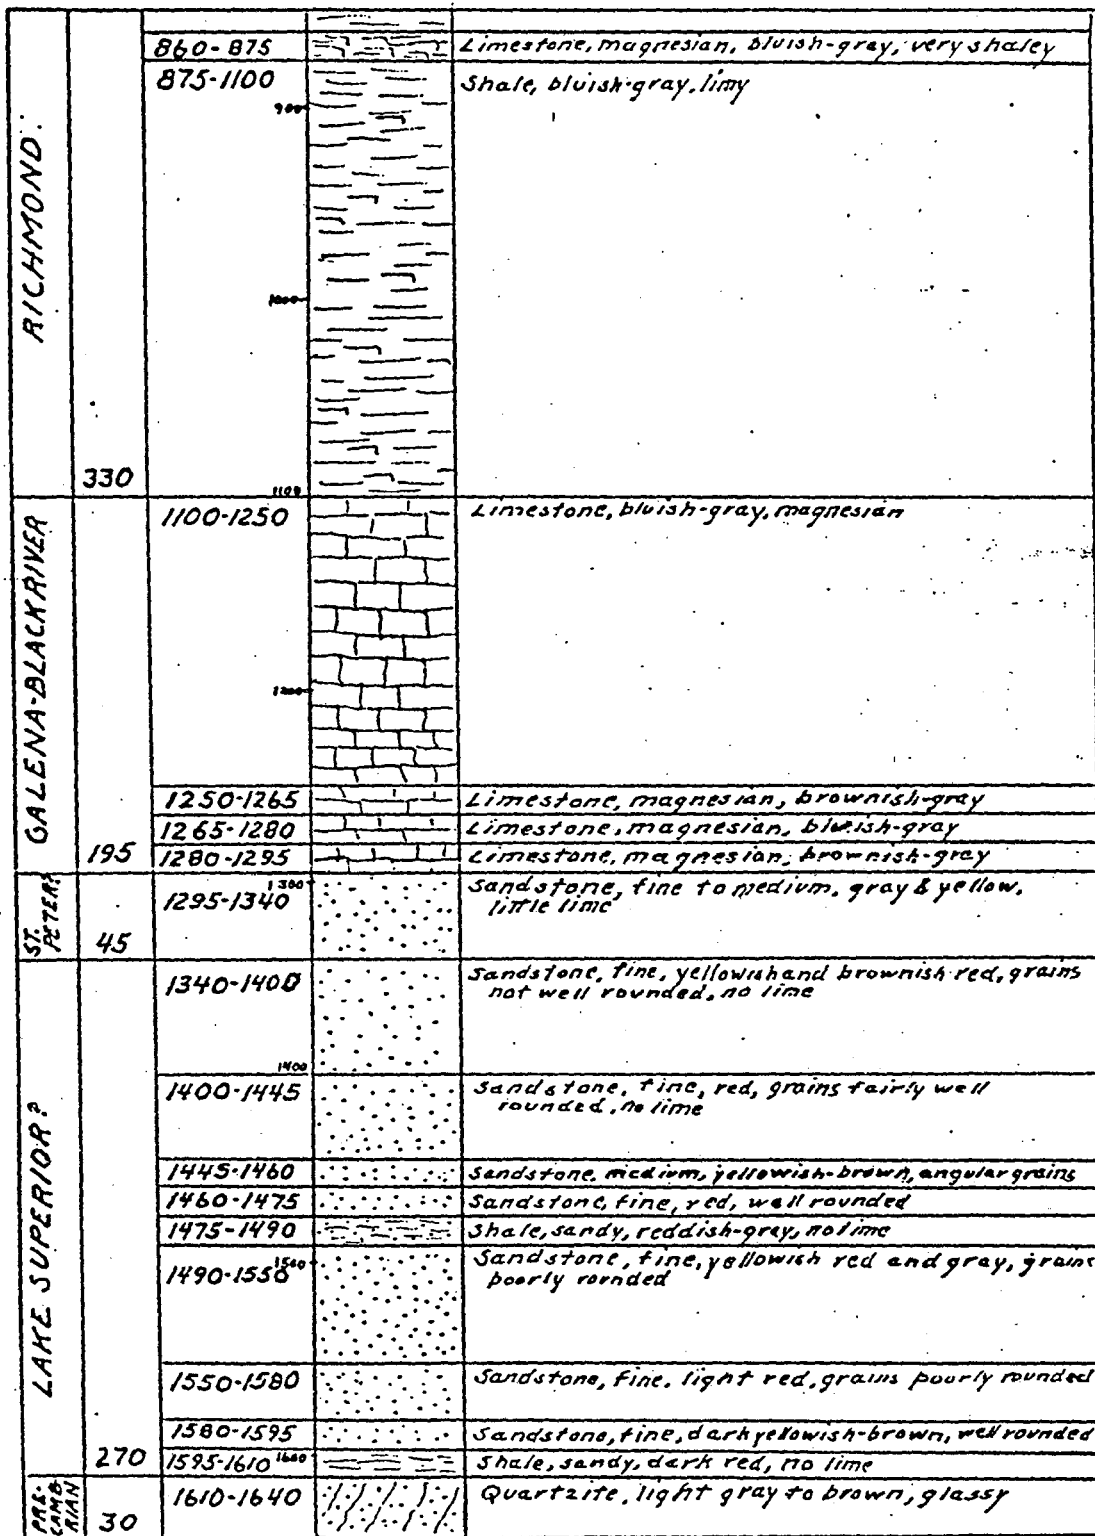 RICHMOND.
330
860-875
Limestone, magnesian, bluish-gray, very shaley
875-1100
Shale, bluish-gray, limy
900
1000
1100
GALENA-BLACKRIVER
195
1100-1250
Limestone, bluish-gray, magnesian
1200
1250-1265
Limestone, magnesian, brownish-gray
1265-1280
Limestone, magnesian, bluish-gray
1280-1295
Limestone, magnesian, brownish-gray
ST. PETER?
45
1300
1295-1340
Sandstone, fine to medium, gray & yellow,
little lime
LAKE SUPERIOR?
270
1340-1400
Sandstone, fine, yellowish and brownish red, grains
not well rounded, no lime
1400
1400-1445
Sandstone, fine, red, grains fairly well
rounded, no lime
1445-1460
Sandstone, medium, yellowish-brown, angular grains
1460-1475
Sandstone, fine, red, well rounded
1475-1490
Shale, sandy, reddish-gray, no lime
1500
1490-1550
Sandstone, fine, yellowish red and gray, grains
poorly rounded
1550-1580
Sandstone, fine, light red, grains poorly rounded
1580-1595
Sandstone, fine, dark yellowish-brown, well rounded
1595-1610
1600
Shale, sandy, dark red, no lime
PRE-
CAMB
RIAN
30
1610-1640
Quartzite, light gray to brown, glassy